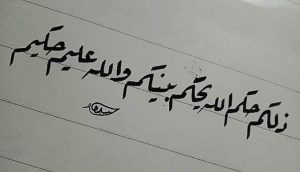 ذلكم حكم الله يحكم بينكم والله عليم حكيم